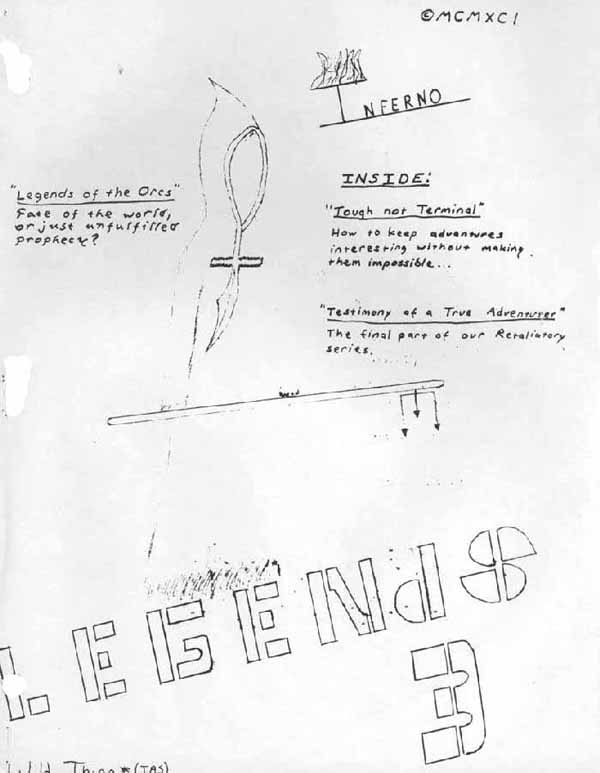 ©MCMXCI
INFERNO
"Legends of the Orcs"
Fate of the world,
or just unfulfilled
prophecy?
INSIDE:
"Tough not Terminal"
How to keep adventures
interesting without making
them impossible...
"Testimony of a True Adventurer"
The final part of our Retaliatory
series.
LEGENdS
3
Wild Thing